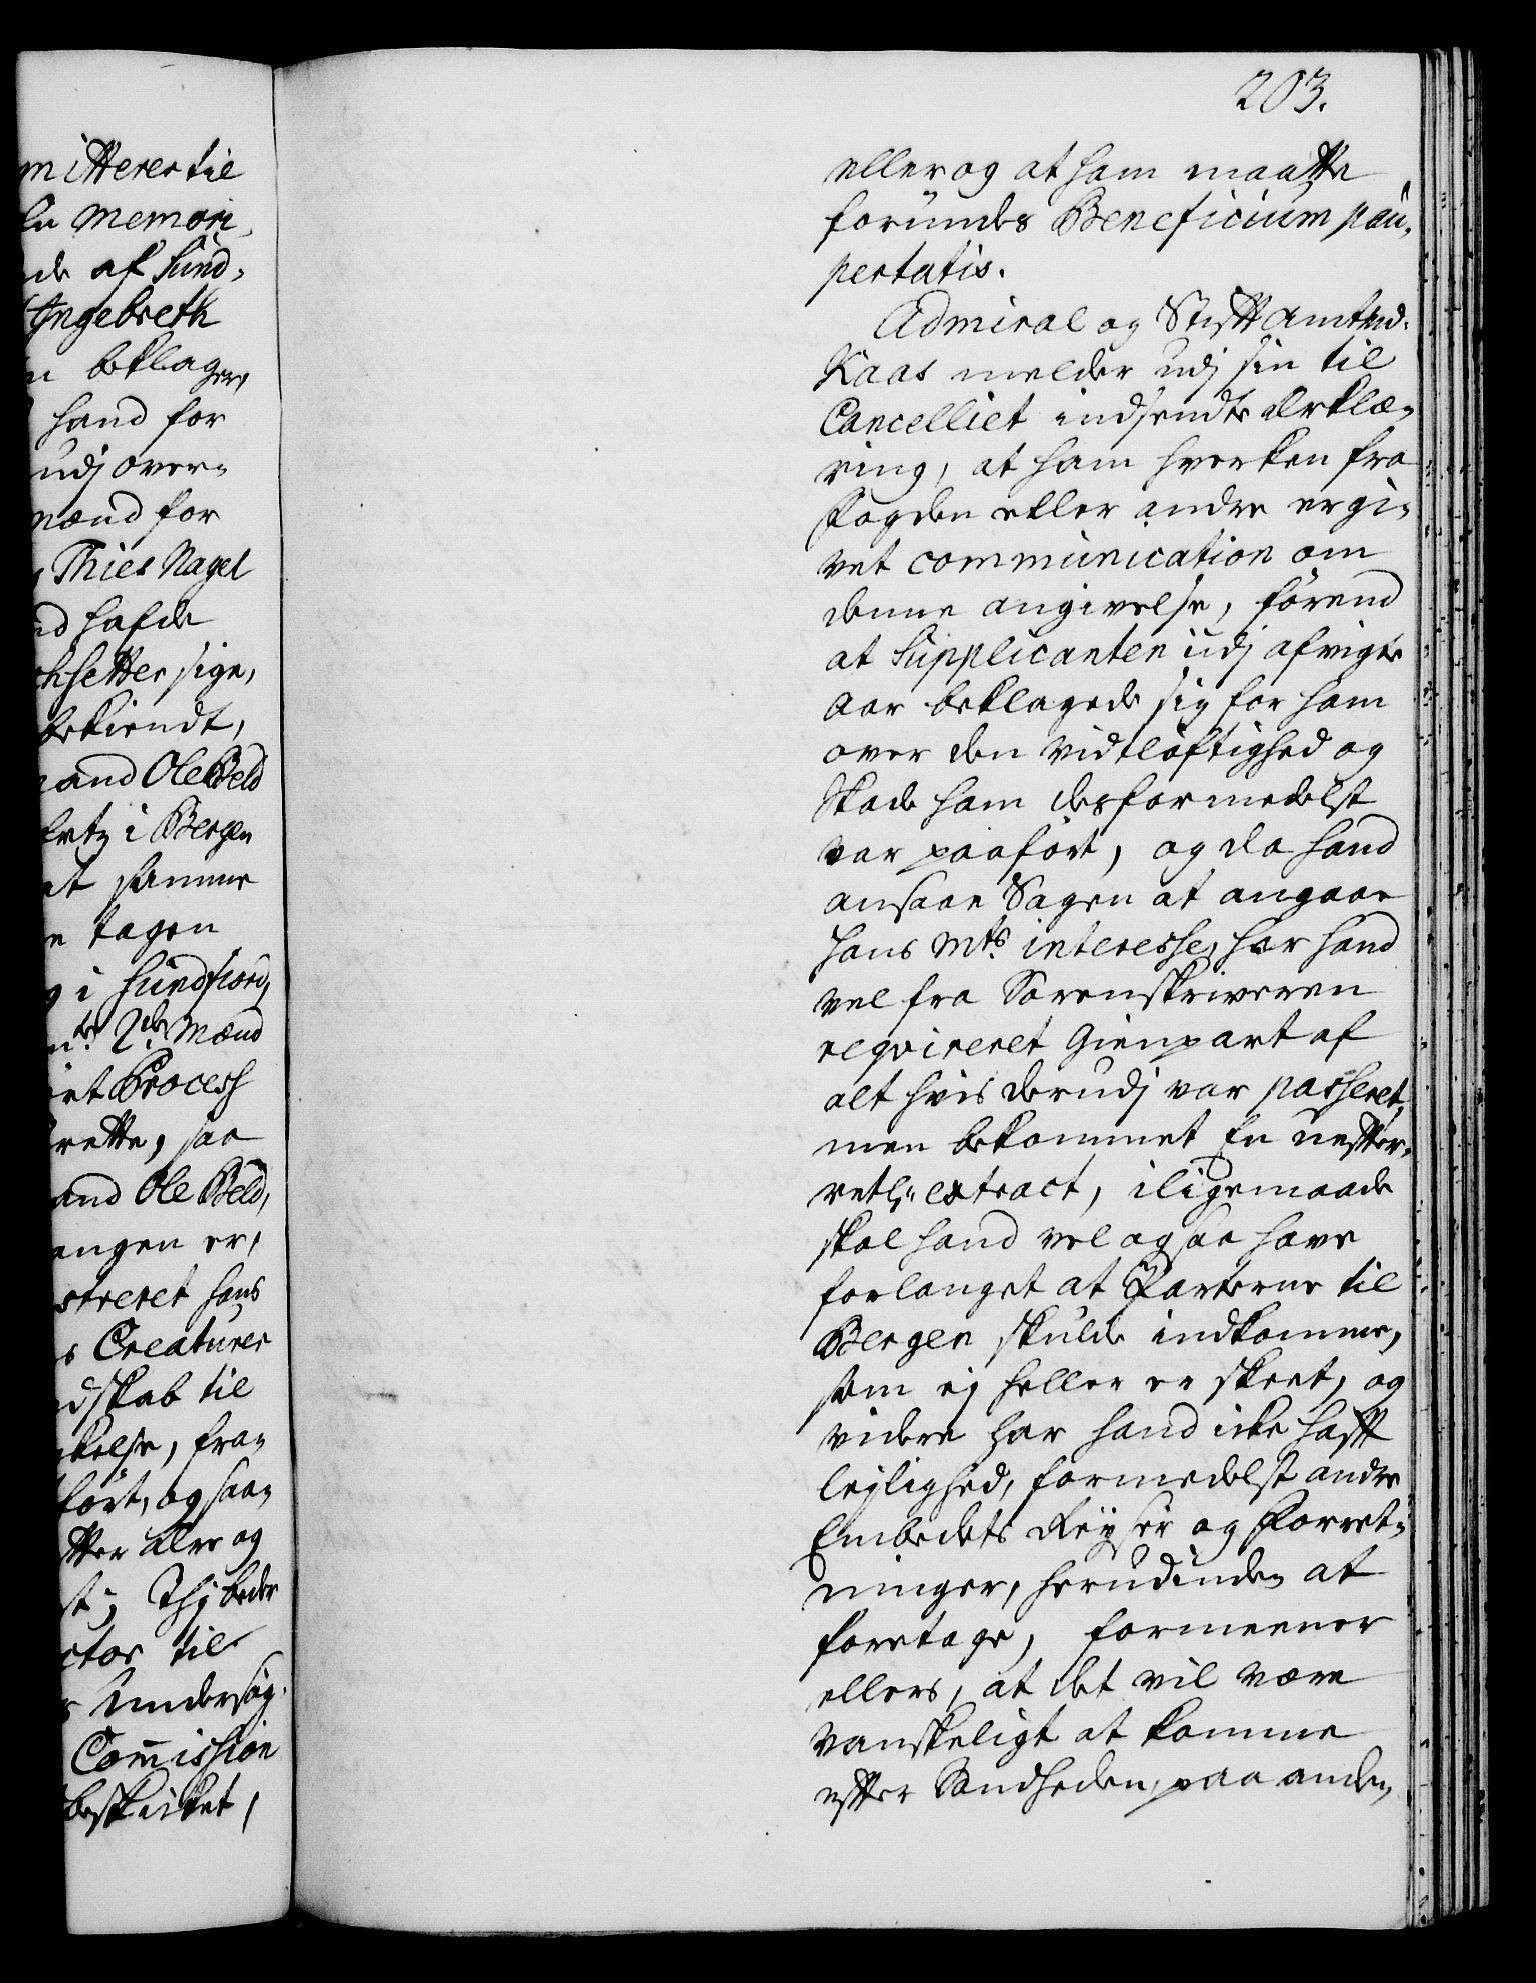 203.
mitterer til
le Memori
de af Sund-
Ingebreth
n beklager,
hand for
udj over-
mænd for
Thies Nagel
nd hafde
hsetter sige,
bekiendt,
mand Ole Beld
i Bergen
at samme
e tagen
g i Sundfiord,
2de Mænd
ret Process
rette, saa
and Ole Beld,
angen er,
streret hans
s Creaturer
dskab til
kelse, fra-
ført, og saa-
tter Ære og
st; Thj beder
ctor til
s Undersøg-
Com̄ission
beskicket,
eller og at ham maatte
forundes Beneficium pau-
pertatis.
Admiral og Stifft Amtmd.
Kaas melder udj sin til
Cancelliet indsendte Erklæ-
ring, at ham hverken fra
Fogden eller andre er gi-
vet communication om
denne angivelse, førend
at Supplicanten udj afvigte
Aar beklagede sig for ham
over den Vidtløftighed og
Skade ham desformedelst
var paaført, og da hand
ansaae Sagen at angaae
Hans Mts. interesse, har hand
vel fra Sorenskriveren
reqvireret Gienpart af
alt hvis derudj var passeret,
men bekommet En uefter-
retl: extract, iligemaade
skal hand vel ogsaa have
forlanget at Parterne til
Bergen skulde indkomme,
som ej heller er skeet, og
videre har hand icke hafft
lejlighed, formedelst andre
Embedets Reyser og Forret-
ninger, herudinden at
foretage, formeener
ellers, at det vil være
vanskeligt at komme
effter Sandheden, paa anden